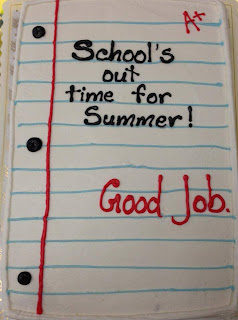 A+
School's
out
time for
Summer!
Good Job.